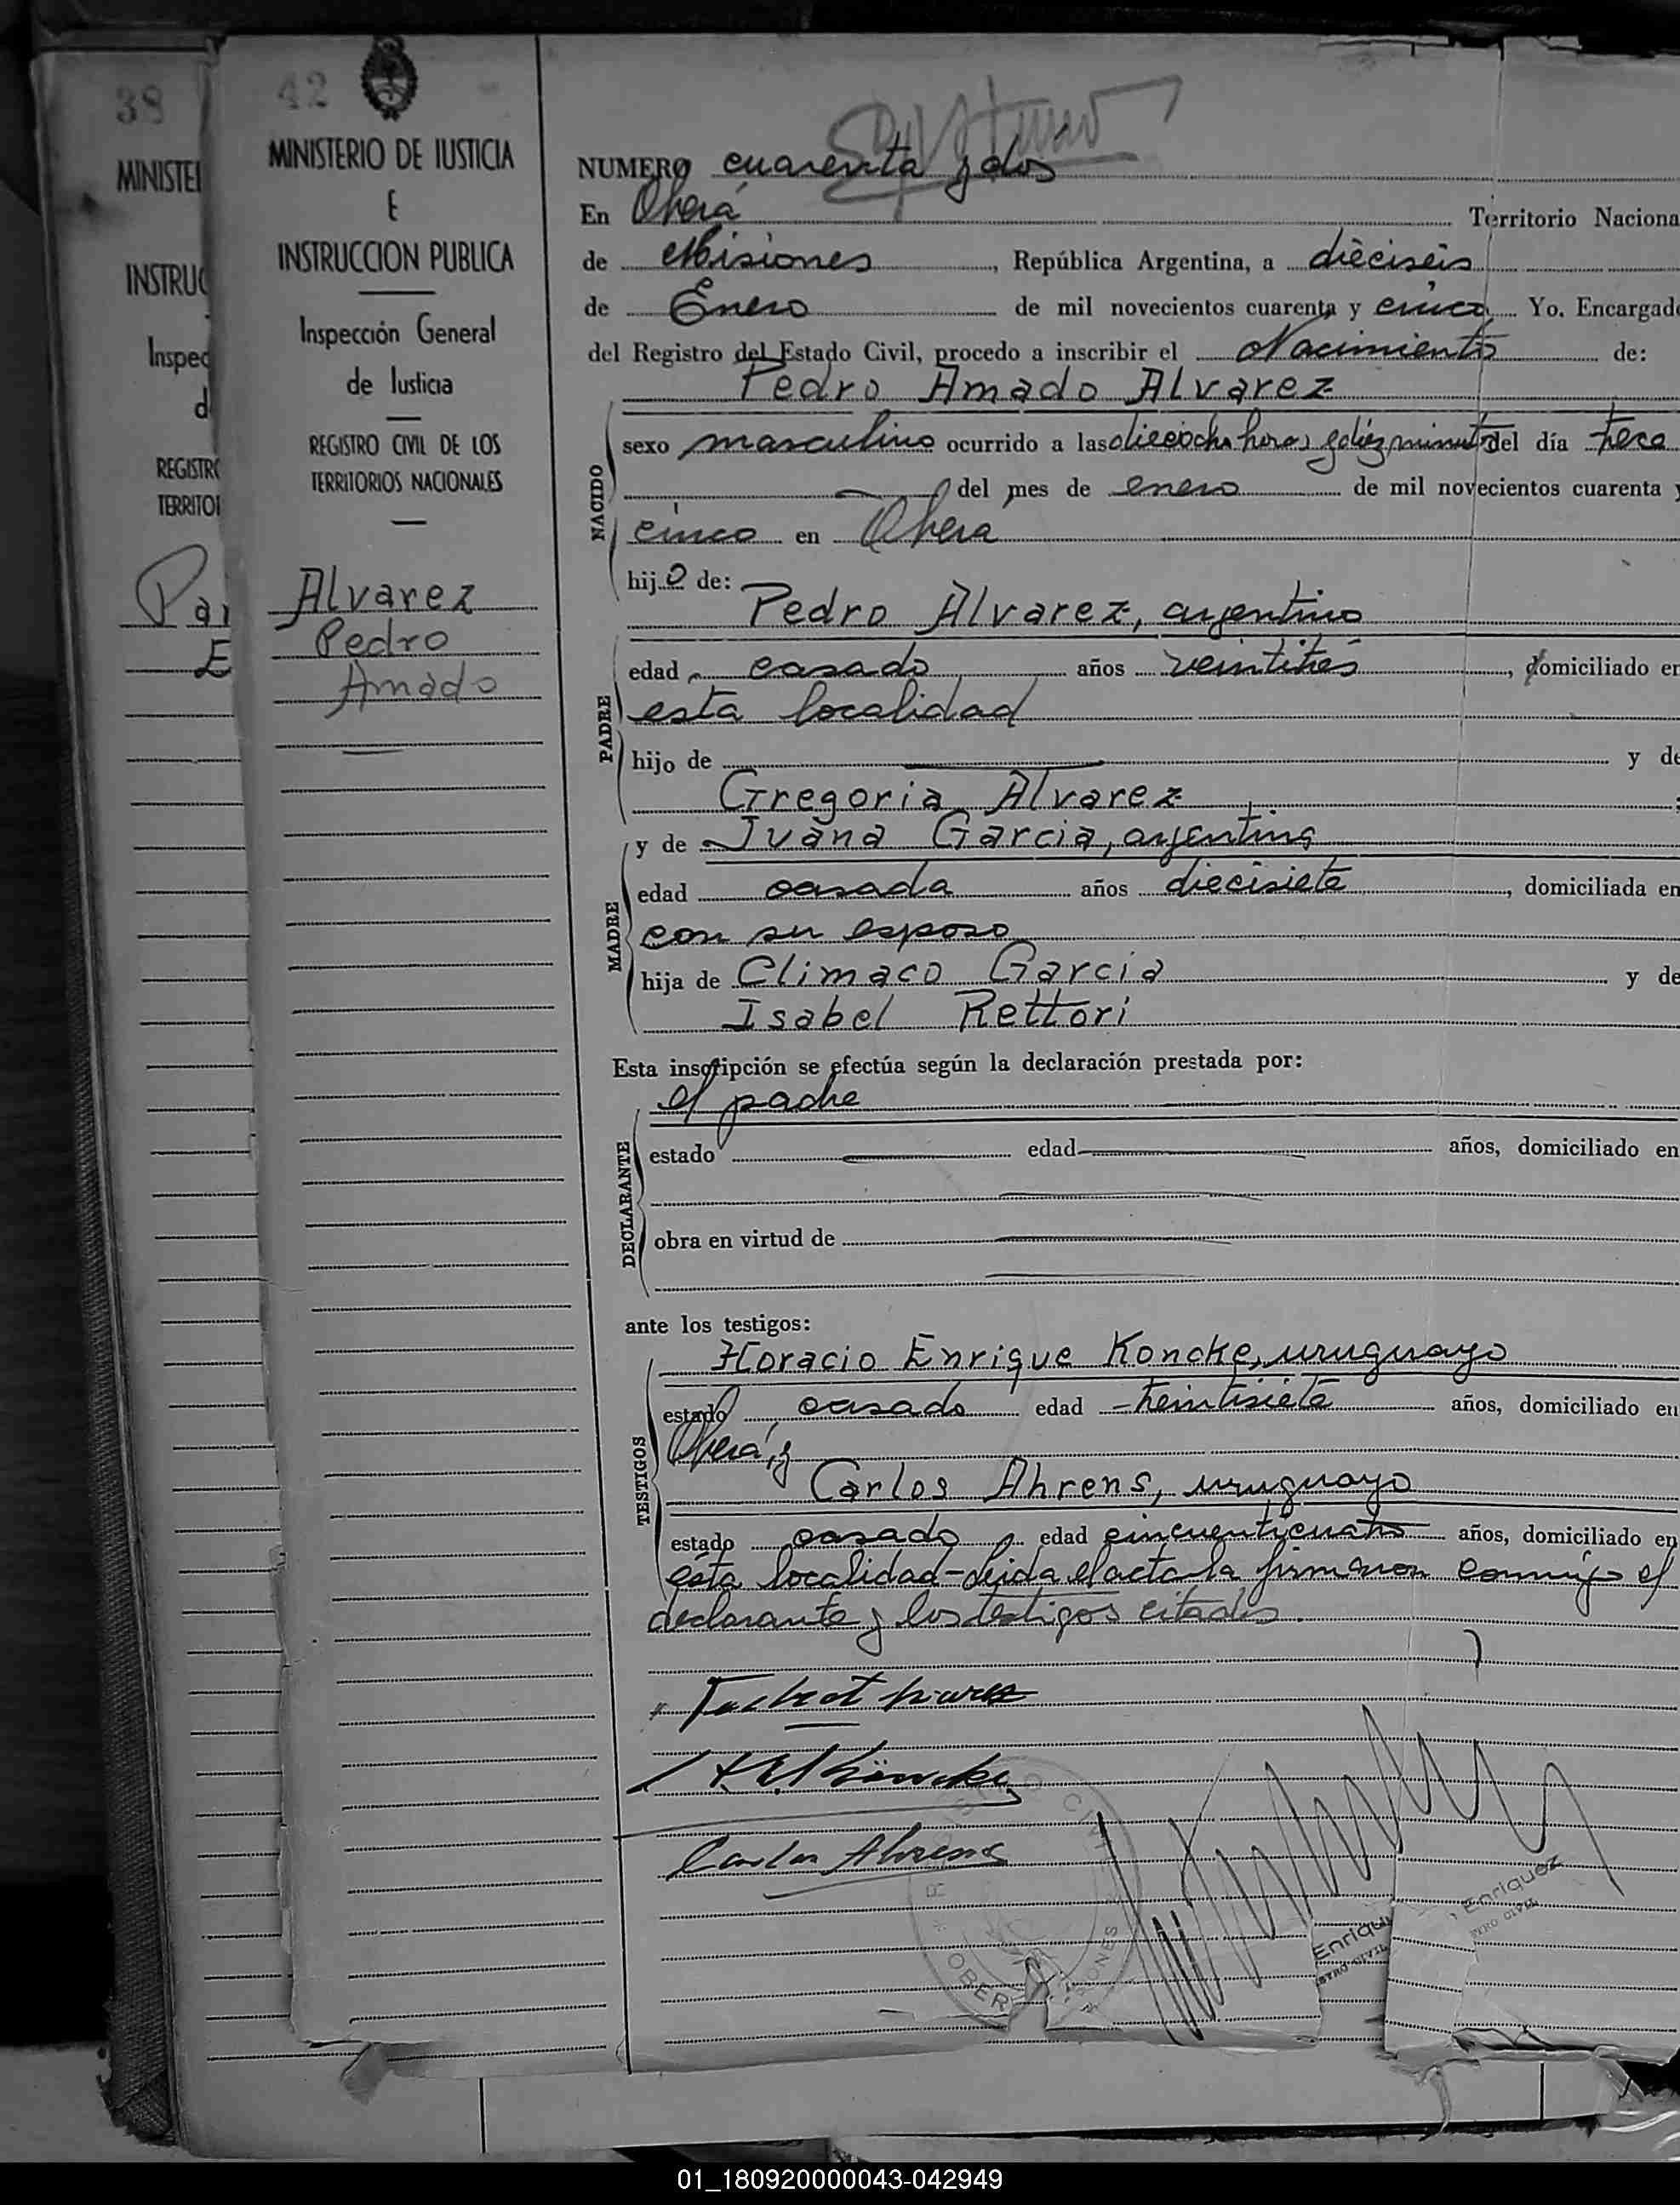 38
MINISTE
INSTRUC
Inspec
d
REGISTR
TERRITO
Pa
E
42
MINISTERIO DE JUSTICIA
E
INSTRUCCION PUBLICA
Inspección General
de Justicia
REGISTRO CIVIL DE LOS
TERRITORIOS NACIONALES
Alvarez
Pedro
Amado
NUMERO cuarenta y dos
En Oberá Territorio Naciona
de Misiones, República Argentina, a dieciseis
de Enero de mil novecientos cuarenta y cinco Yo. Encargad
del Registro del Estado Civil, procedo a inscribir el Nacimiento de:
Pedro Amado Alvarez
NACIDO
sexo masculino ocurrido a las dieciocho horas y diez minut del día trece
del mes de enero de mil novecientos cuarenta y
cinco en Oberá
hijo de:
Pedro Alvarez, argentino
PADRE
edad casado años veintitrés, domiciliado en
esta localidad
hijo de y de
Gregoria Alvarez
y de Juana Garcia, argentina
MADRE
edad casada años diecisiete, domiciliada en
con su esposo
hija de Climaco Garcia y de
Isabel Rettori
Esta inscripción se efectúa según la declaración prestada por:
el padre
DECLARANTE
estado edad años, domiciliado en
obra en virtud de
ante los testigos:
Horacio Enrique Koncke, uruguayo
TESTIGOS
estado casado edad treintisiete años, domiciliado en
Oberá, y
Carlos Ahrens, uruguayo
estado casado edad cincuenticuatro años, domiciliado en
ésta localidad - Leida el acta la firmaron conmigo el
declarante y los testigos citados.
H.E. Köncke
Carlos Ahrens
OBER
Enriqu
STRO CIVIL
Enriquez
TRO CIVIL
01_180920000043-042949